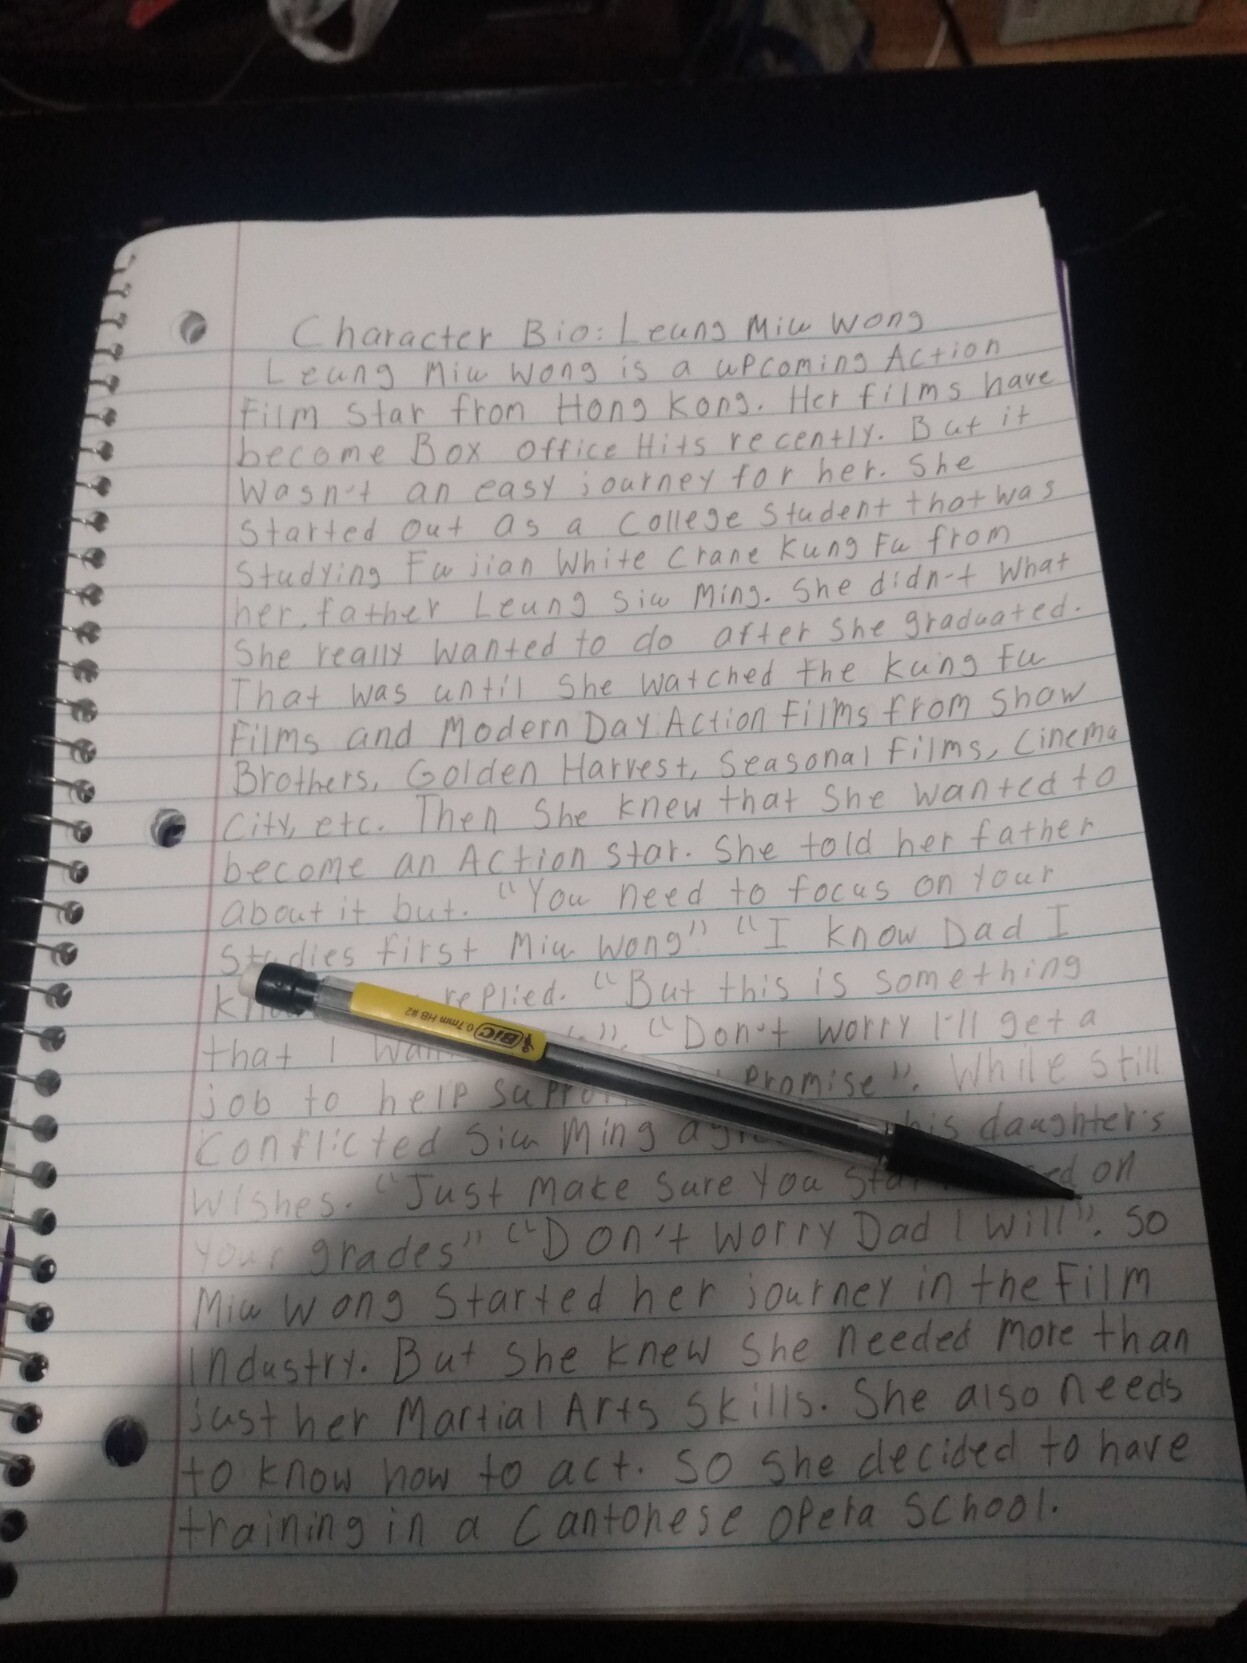 Character Bio: Leung Miu Wong
Leung Miu Wong is a upcoming Action
Film Star from Hong Kong. Her films have
become Box Office Hits recently. But it
wasn't an easy journey for her. She
started out as a College Student that was
studying Fujian White Crane Kung Fu from
her father Leung Siu Ming. She didn't what
she really wanted to do after she graduated.
That was until she watched the Kung Fu
Films and Modern Day Action Films from Shaw
Brothers, Golden Harvest, Seasonal Films, Cinema
City, etc. Then she knew that she wanted to
become an Action Star. She told her father
about it but. "You need to focus on your
studies first Miu Wong" "I know Dad I
replied. "But this is something
that I "Don't worry I'll get a
job to help Promise". While still
conflicted Siu Ming his daughter's
wishes. "Just make sure you on
your grades" "Don't worry Dad I will". So
Miu Wong started her journey in the Film
Industry. But she knew she needed more than
just her Martial Arts Skills. She also needs
to know how to act. So she decided to have
training in a Cantonese Opera School.
BIC 0.7mm HB #2